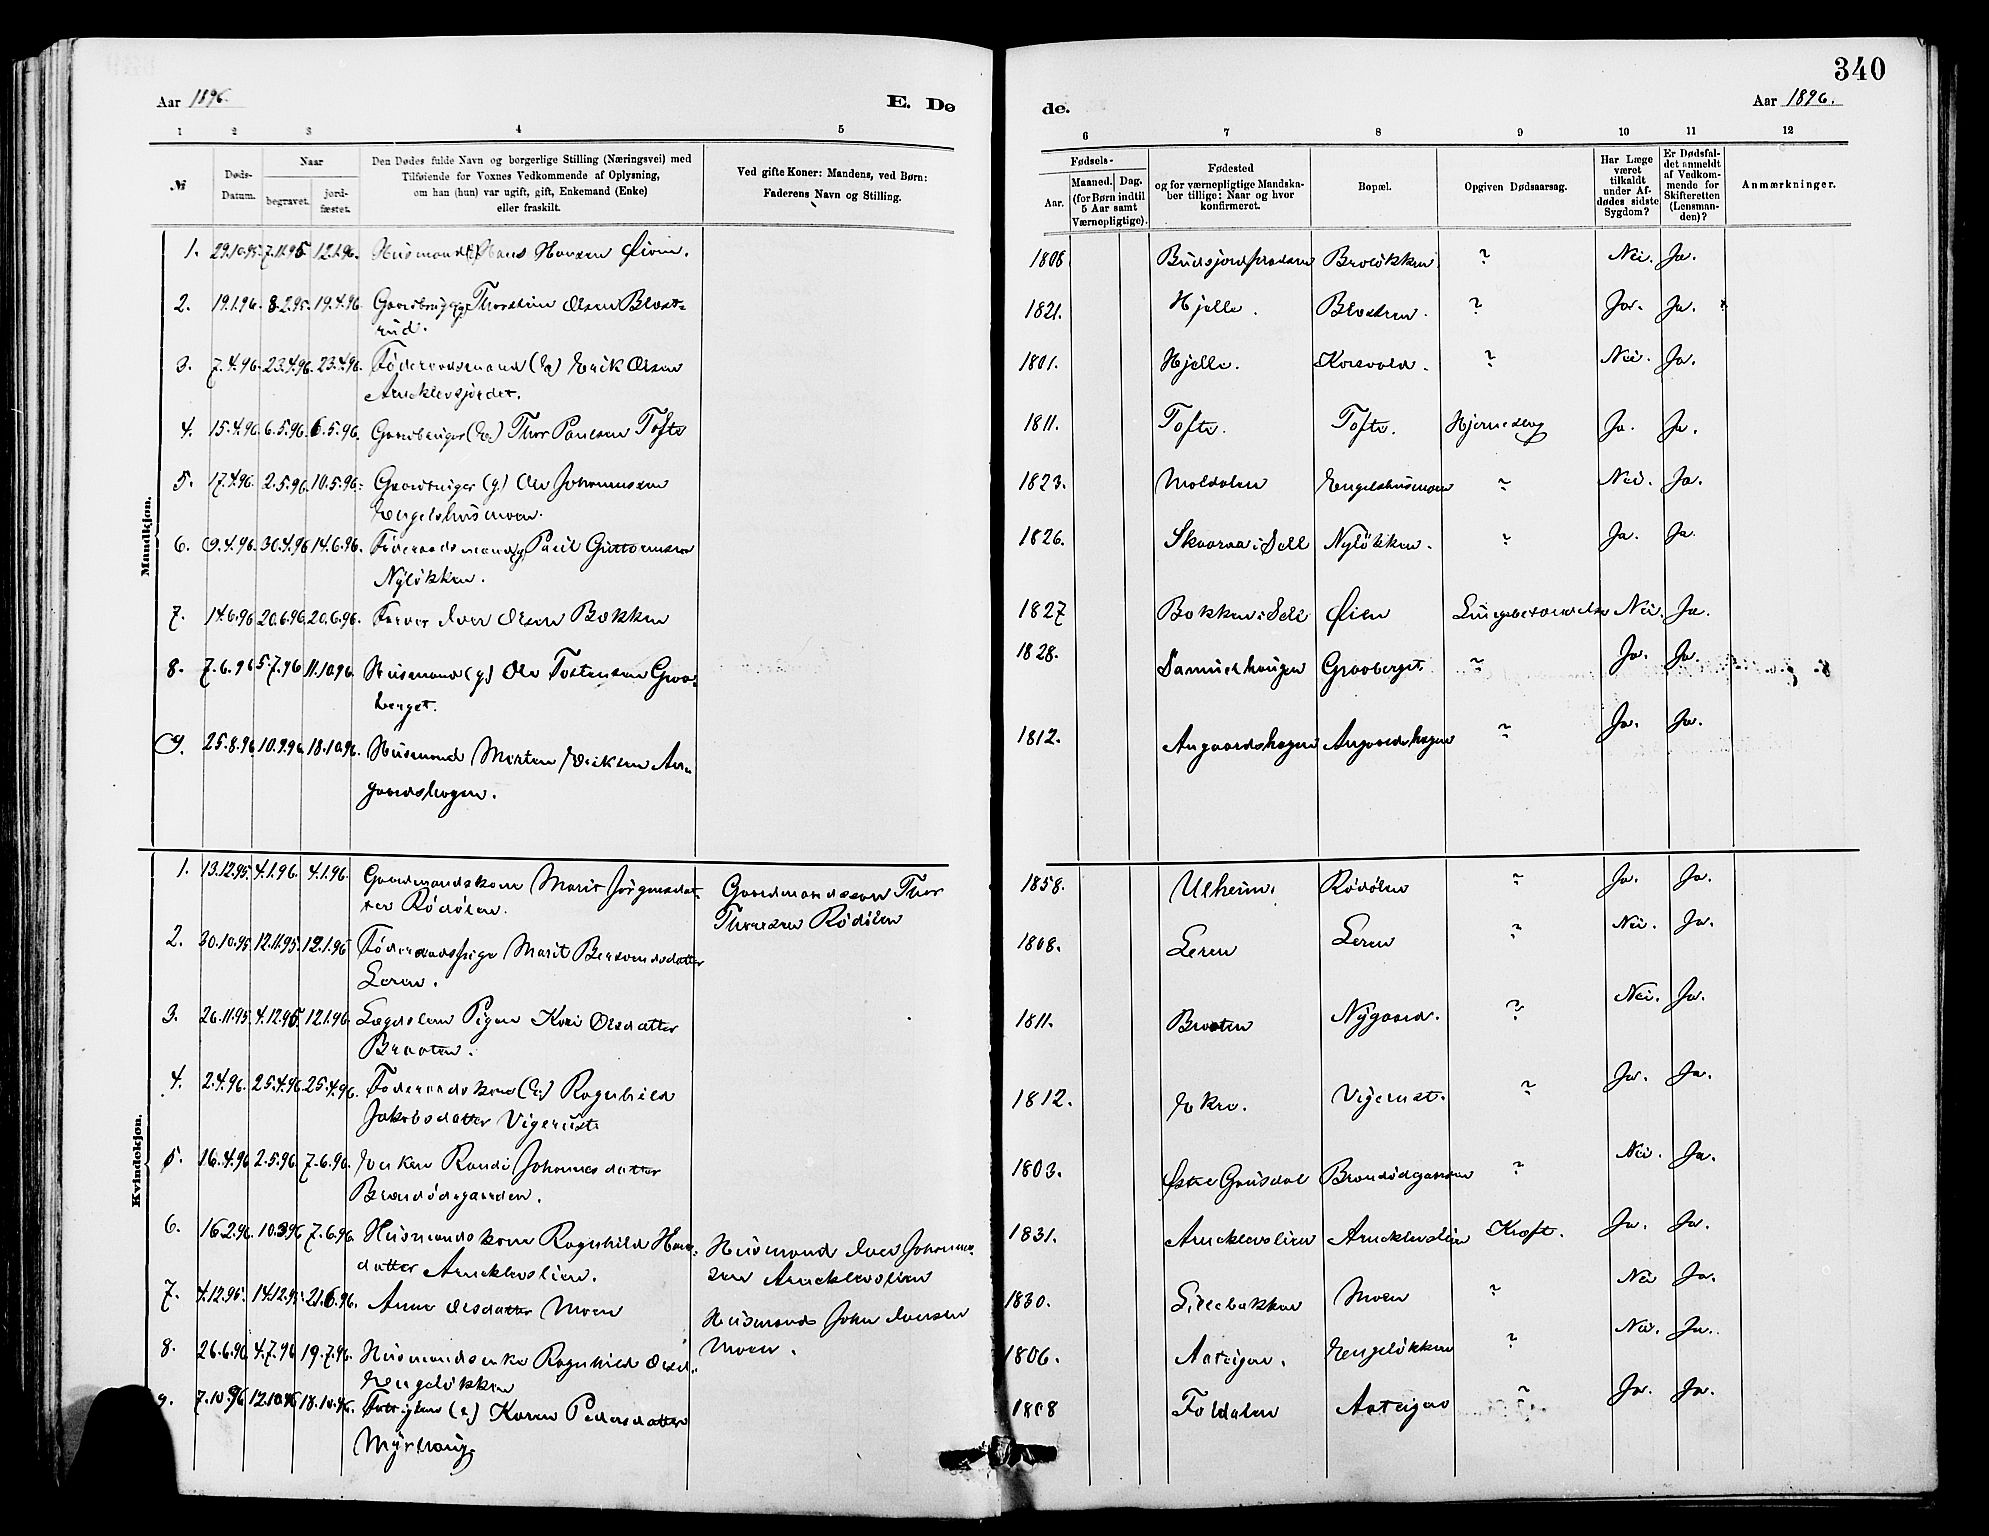 340
Aar 1896.
E. Dø
de.
Aar 1896.
1 2 3 4 5
6 7 8 9 10 11 12
№
Døds-
Datum.
Naar
begravet.
jord-
fæstet.
Den Dødes fulde Navn og borgerlige Stilling (Næringsvei) med
Tilføiende for Voxnes Vedkommende af Oplysning,
om han (hun) var ugift, gift, Enkemand (Enke)
eller fraskilt.
Ved gifte Koner: Mandens, ved Børn:
Faderens Navn og Stilling.
Fødsels-
Aar.
Maaned. Dag.
(for Børn indtil
5 Aar samt
Værnepligtige).
Fødested
og for værnepligtige Mandska-
ber tillige: Naar og hvor
konfirmeret.
Bopæl.
Opgiven Dødsaarsag.
Har Læge
været
tilkaldt
under Af-
dødes sidste
Sygdom?
Er Dødsfal-
det anmeldt
af Vedkom-
mende for
Skifteretten
(Lensman-
den)?
Anmærkninger.
Mandkjøn.
1. 29.10.95. 7.11.95 12.1.96. Husmand Hans Hansen Øien. 1808 Broløkken. ? Nei. Ja.
2. 19.1.96. 8.2.95. 19.4.96. Gaardbruger Thorstein Olsen Blæst-
rud. 1821. Hjelle. ? Ja. Ja.
3. 7.4.96. 23.4.96. 23.4.96. Føderaadsmand (E) Erik Olsen
Arneklevsjordet. 1801. Hjelle. Korsvold. ? Nei. Ja.
4. 15.4.96. 6.5.96. 6.5.96. Gaardbruger (E.) Thor Paulsen Tofte 1811. Tofte. Tofte. Hjerneslag Ja. Ja.
5. 17.4.96. 2.5.96. 10.5.96. Gaardbruger (g.) Ole Johannessen
Engelshusmoen. 1823. Moldalen Engelshusmoen ? Nei. Ja.
6. 9.4.96. 30.4.96 14.6.96. Føderaadsmand (g) Paul Guttormsen
Nyløkken. 1826. Skaaraa i Sell Nyløkken. ? Ja. Ja.
7. 14.6.96 20.6.96 20.6.96. Iver Olsen Bakken 1827 Bakken i Sell Øien Lungebetændelse Nei. Ja.
8. 7.6.96 5.7.96 11.10.96. Husmand (g.) Ole Tostensen Graa-
berget. 1828. Samuelhaugen Graaberget. ? Ja. Ja.
9. 25.8.96 10.9.96. 18.10.96. Husmand Morten Eriksen An-
gaardshagen. 1812. Angaardshagen Angaardshagen ? Ja. Ja.
Kvindekjøn.
1. 13.12.95. 4.1.96. 4.1.96. Gaardmandskone Marit Jørgensdat-
ter Rødølen. Gaardmandssøn Thor
Thoresen Rødølen 1858. Ulheim. Rødølen ? Ja. Ja.
2. 30.10.95 12.11.95. 12.1.96 Føderaadspige Marit Bersvendsdatter
Leren. 1808. Leren Leren ? Nei. Ja.
3. 26.11.95. 4.12.95. 12.1.96. Lægdslem Pigen Kari Olsdatter
Braaten. 1811. Braaten Nygaard. ? Nei. Ja.
4. 2.4.96. 25.4.96 25.4.96. Føderaadskone (E) Ragnhild
Jakobsdatter Vigerust. 1812. Ekre. Vigerust. ? Ja. Ja.
5. 16.4.96 2.5.96. 7.6.96. Enken Randi Johannesdatter
Brandødegaarden. 1803. Østre Gausdal Brandødegaarden ? Nei. Ja.
6. 16.2.96. 10.3.96 7.6.96. Husmandskone Ragnhild Hans-
datter Arneklevslien. Husmand Iver Johannes-
sen Arneklevslien 1831. Arneklevslien Arneklevslien Kræft. Ja. Ja.
7. 4.12.95. 14.12.95. 21.6.96. Anne Olsdatter Moen Husmand John Iversen
Moen. 1830. Lillebakken Moen ? Nei Ja.
8. 26.6.96 4.7.96 19.7.96. Husmandsenke Ragnhild Olsd.
Engeløkken 1806. Aateigen. Engeløkken ? Nei. Ja.
9. 7.10.96 12.10.96 18.10.96. Fattiglem (E) Karen Pedersdatter
Myrhaug 1808 Foldalen Aateigen ? Ja. Ja.